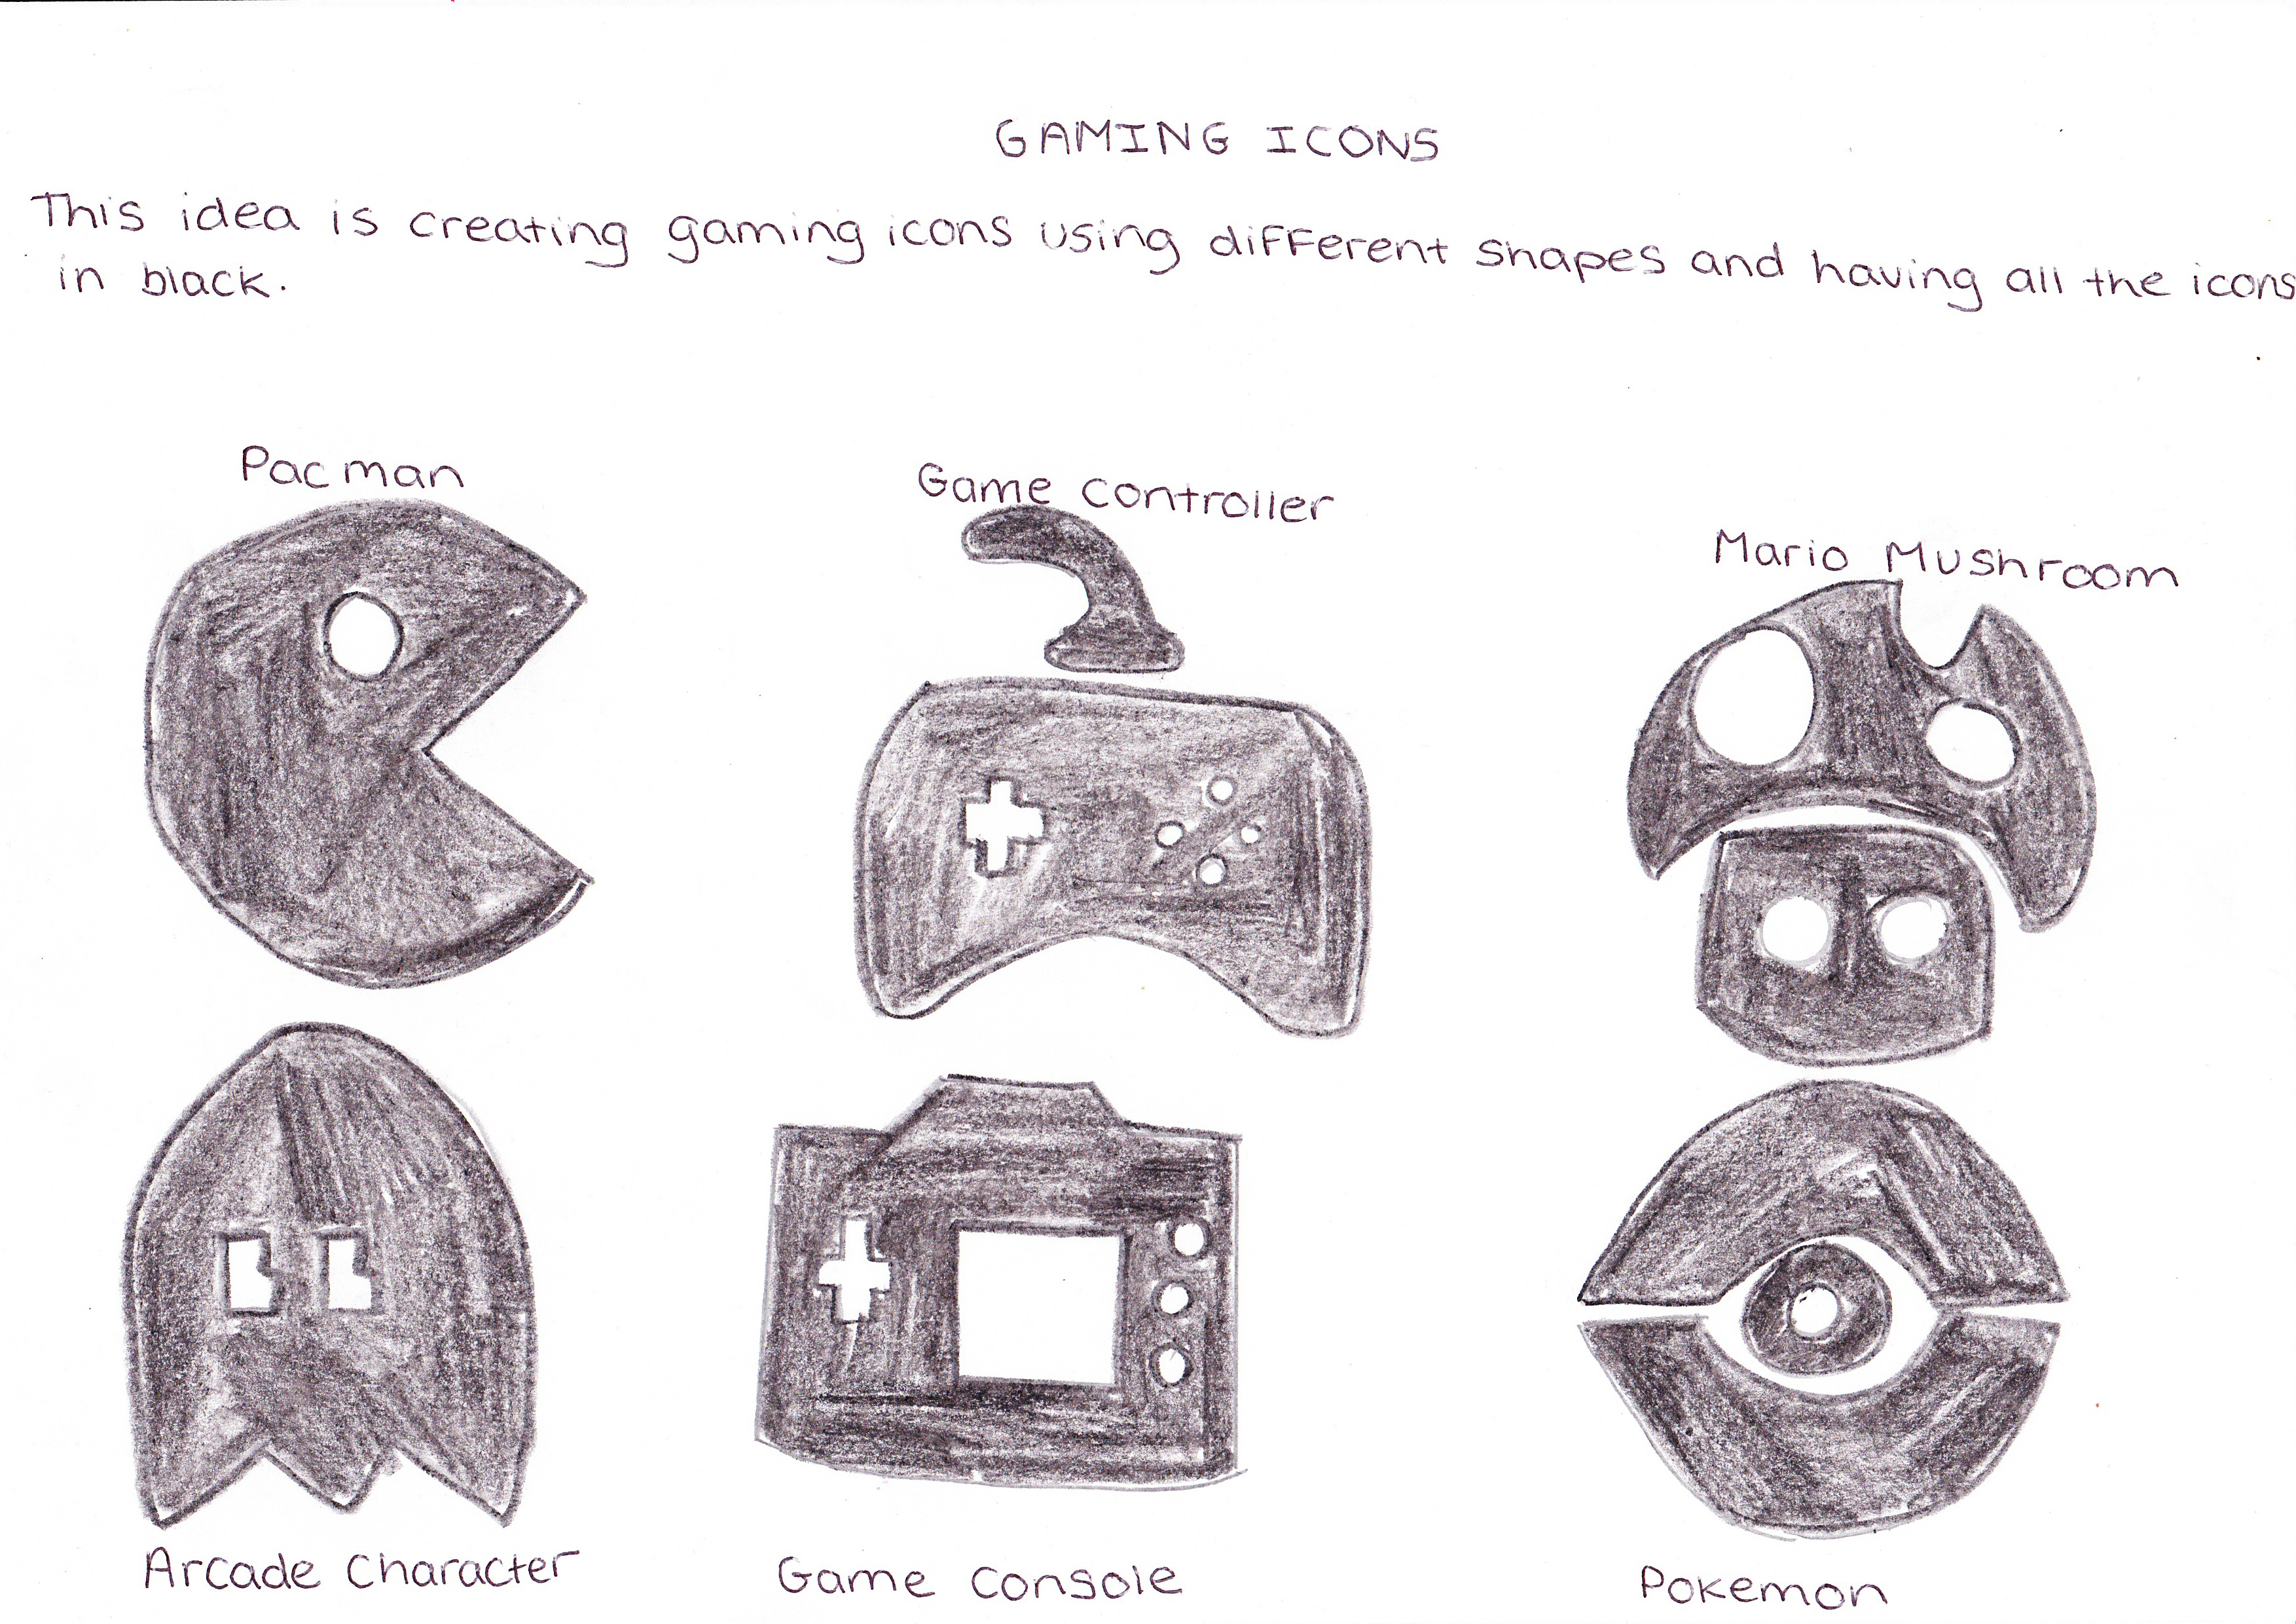 GAMING ICONS
This idea is creating gaming icons using different shapes and having all the icons
in black.
Pacman
Game controller
Mario Mushroom
Arcade character
Game console
Pokemon